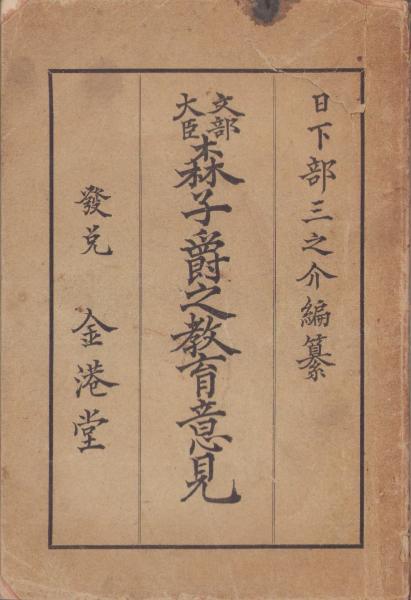 日下部三之介編纂
文部大臣森子爵之教育意見
發兌 金港堂